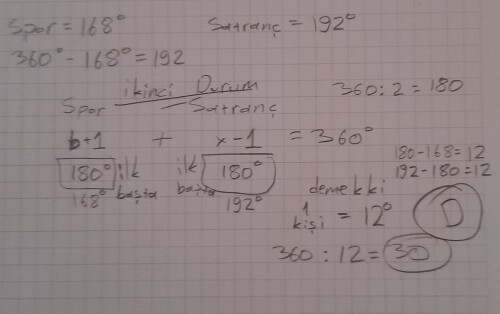 Spor = 168°
Satranç = 192°
360° - 168° = 192
ikinci Durum
360 : 2 = 180
Spor
Satranç
b+1 + x-1 = 360°
180° ilk
168° başta
ilk 180°
başta 192°
180-168=12
192-180=12
demekki
1 kişi = 12°
D
360 : 12 = 30